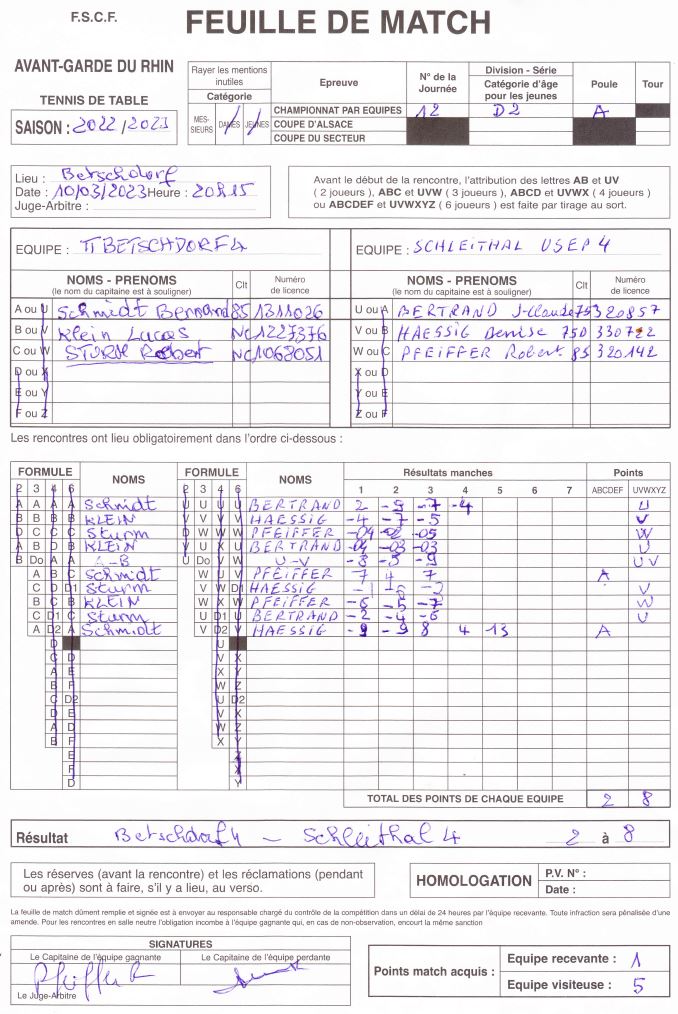 F.S.C.F.
FEUILLE DE MATCH
AVANT-GARDE DU RHIN
TENNIS DE TABLE
SAISON : 2022 / 2023
Rayer les mentions inutiles
Catégorie
MES-SIEURS DAMES JEUNES
Epreuve
N° de la Journée
Division - Série
Catégorie d'âge pour les jeunes
Poule
Tour
CHAMPIONNAT PAR EQUIPES 12 D2 A
COUPE D'ALSACE
COUPE DU SECTEUR
Lieu : Betschdorf
Date : 10/03/2023 Heure : 20H15
Juge-Arbitre :
Avant le début de la rencontre, l'attribution des lettres AB et UV
( 2 joueurs ), ABC et UVW ( 3 joueurs ), ABCD et UVWX ( 4 joueurs )
ou ABCDEF et UVWXYZ ( 6 joueurs ) est faite par tirage au sort.
EQUIPE : TT BETSCHDORF 4
EQUIPE : SCHLEITHAL USEP 4
NOMS - PRENOMS Clt Numéro de licence
(le nom du capitaine est à souligner)
NOMS - PRENOMS Clt Numéro de licence
(le nom du capitaine est à souligner)
A ou U Schmidt Bernard 85 1311026 U ou A BERTRAND J-Claude 75 320857
B ou V Klein Lucas NC 1227376 V ou B HAESSIG Denise 750 330722
C ou W STURM Robert NC 1068051 W ou C PFEIFFER Robert 85 320142
D ou X X ou D
E ou Y Y ou E
F ou Z Z ou F
Les rencontres ont lieu obligatoirement dans l'ordre ci-dessous :
FORMULE NOMS FORMULE NOMS Résultats manches Points
2 3 4 6 2 3 4 6 1 2 3 4 5 6 7 ABCDEF UVWXYZ
A A A A Schmidt U U U U BERTRAND 2 -9 -7 -4 U
B B B B KLEIN V V V V HAESSIG -4 -7 -5 V
D C C C Sturm U W W W PFEIFFER -04 -02 -05 W
A B D B KLEIN V U X U BERTRAND -04 -03 -03 U
B Do A A A-B U Do V W U-V -3 -5 -9 UV
A B C Schmidt W U V PFEIFFER 7 4 7 A
C D D1 Sturm V W D1 HAESSIG -1 -5 -2 V
B C B KLEIN W X W PFEIFFER -6 -5 -7 W
C D1 C Sturm U D1 U BERTRAND -2 -4 -6 U
A D2 A Schmidt V D2 V HAESSIG -9 -9 8 4 13 A
D U
C D V X
A E X Y
B F W Z
C D2 U D2
D E V X
A D W Z
B F X Y
E Z
F X
D Y
TOTAL DES POINTS DE CHAQUE EQUIPE 2 8
Résultat Betschdorf 4 - Schleithal 4 2 à 8
Les réserves (avant la rencontre) et les réclamations (pendant
ou après) sont à faire, s'il y a lieu, au verso.
HOMOLOGATION
P.V. N° :
Date :
La feuille de match dûment remplie et signée est à envoyer au responsable chargé du contrôle de la compétition dans un délai de 24 heures par l'équipe recevante. Toute infraction sera pénalisée d'une
amende. Pour les rencontres en salle neutre l'obligation incombe à l'équipe gagnante qui, en cas de non-observation, encourt la même sanction
SIGNATURES
Le Capitaine de l'équipe gagnante Le Capitaine de l'équipe perdante
Pfeiffer R
Le Juge-Arbitre
Points match acquis :
Equipe recevante : 1
Equipe visiteuse : 5